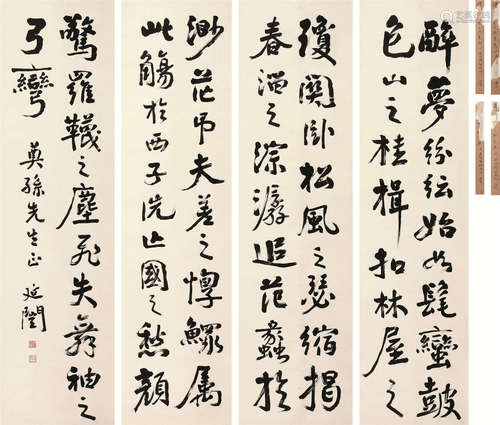 醉夢紛紜始如髦蠻鼓
包山之桂楫扣林屋之
瓊關臥松風之瑟縮揭
春溜之淙潺追范蠡於
渺茫吊夫差之惸鰥属
此觴於西子洗亡國之愁顏
驚羅韈之塵飛失舞袖之
弓彎 奠孫先生正 延闓